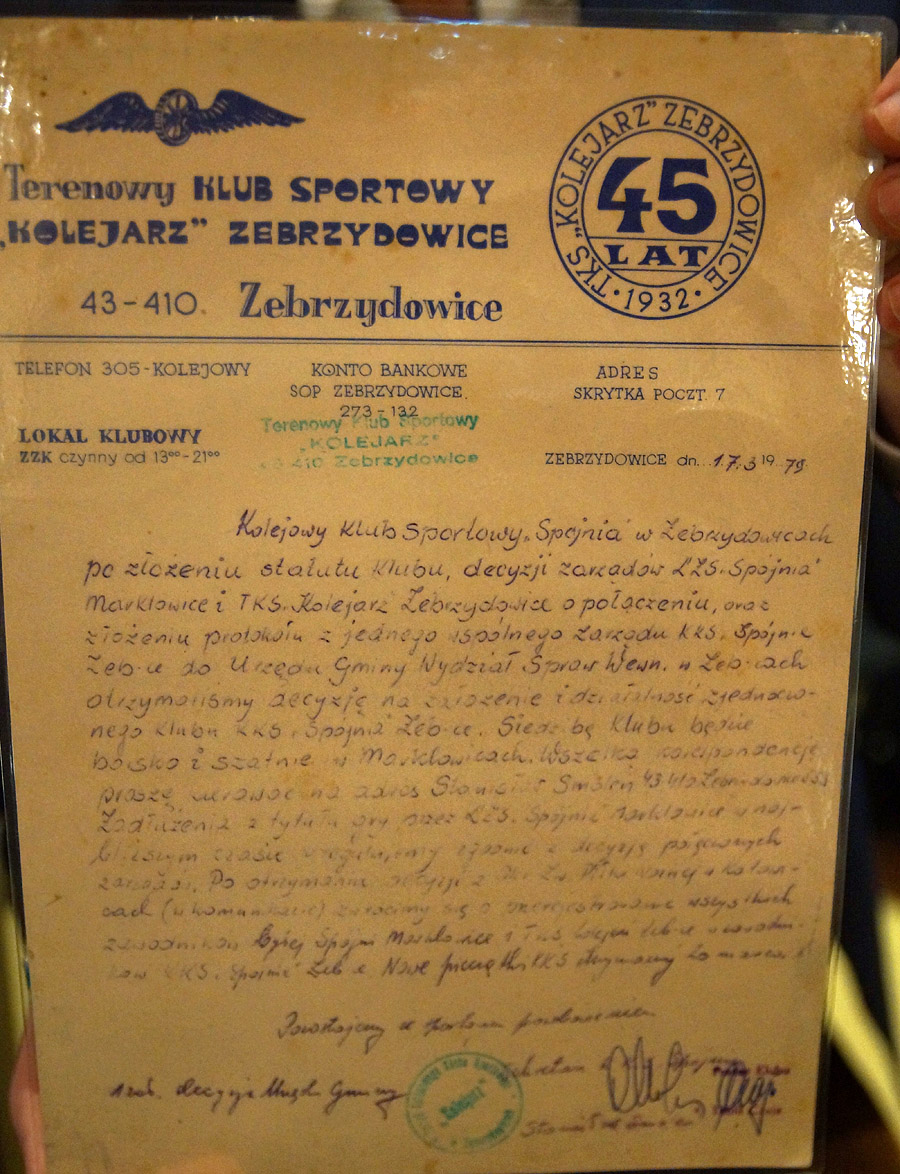 Terenowy KLUB SPORTOWY
„KOLEJARZ” ZEBRZYDOWICE
43-410. Zebrzydowice
TKS „KOLEJARZ” ZEBRZYDOWICE
45
LAT
· 1932 ·
TELEFON 305-KOLEJOWY
KONTO BANKOWE
SOP ZEBRZYDOWICE.
273-132
ADRES
SKRYTKA POCZT. 7
LOKAL KLUBOWY
ZZK czynny od 13⁰⁰-21⁰⁰
Terenowy Klub Sportowy
„KOLEJARZ”
43-410 Zebrzydowice
ZEBRZYDOWICE dn. 17.3 1979
Kolejowy Klub Sportowy „Spójnia” w Zebrzydowicach
po złożeniu statutu Klubu, decyzji zarządów LZS „Spójnia”
Marklowice i TKS „Kolejarz” Zebrzydowice o połączeniu, oraz
złożeniu protokółu z jednego wspólnego zarządu KKS „Spójnia
Zeb-ce do Urzędu Gminy Wydział Spraw Wewn. w Zeb-cach
otrzymaliśmy decyzję na założenie i działalność zjednoczo-
nego Klubu KKS „Spójnia” Zeb-ce. Siedzibą Klubu będzie
boisko i szatnie w Marklowicach. Wszelką korespondencję
proszę kierować na adres Stanisław Smoleń 43-410
Zadłużenia z tytułu gry przez LZS „Spójnia” Marklowice w naj-
bliższym czasie zgodnie z decyzją połączonych
zarządów. Po otrzymaniu decyzji z w Katowi-
cach (w komunikacie) zwrócimy się o wszystkich
zawodników Marklowice i TKS Kolejarz Zeb-ce
KKS „Spójnia” Zeb-ce Nowe pieczątki KKS otrzymamy
Pozostajemy w
1 zał. decyzja Urzędu Gminy
„Kolejarz”